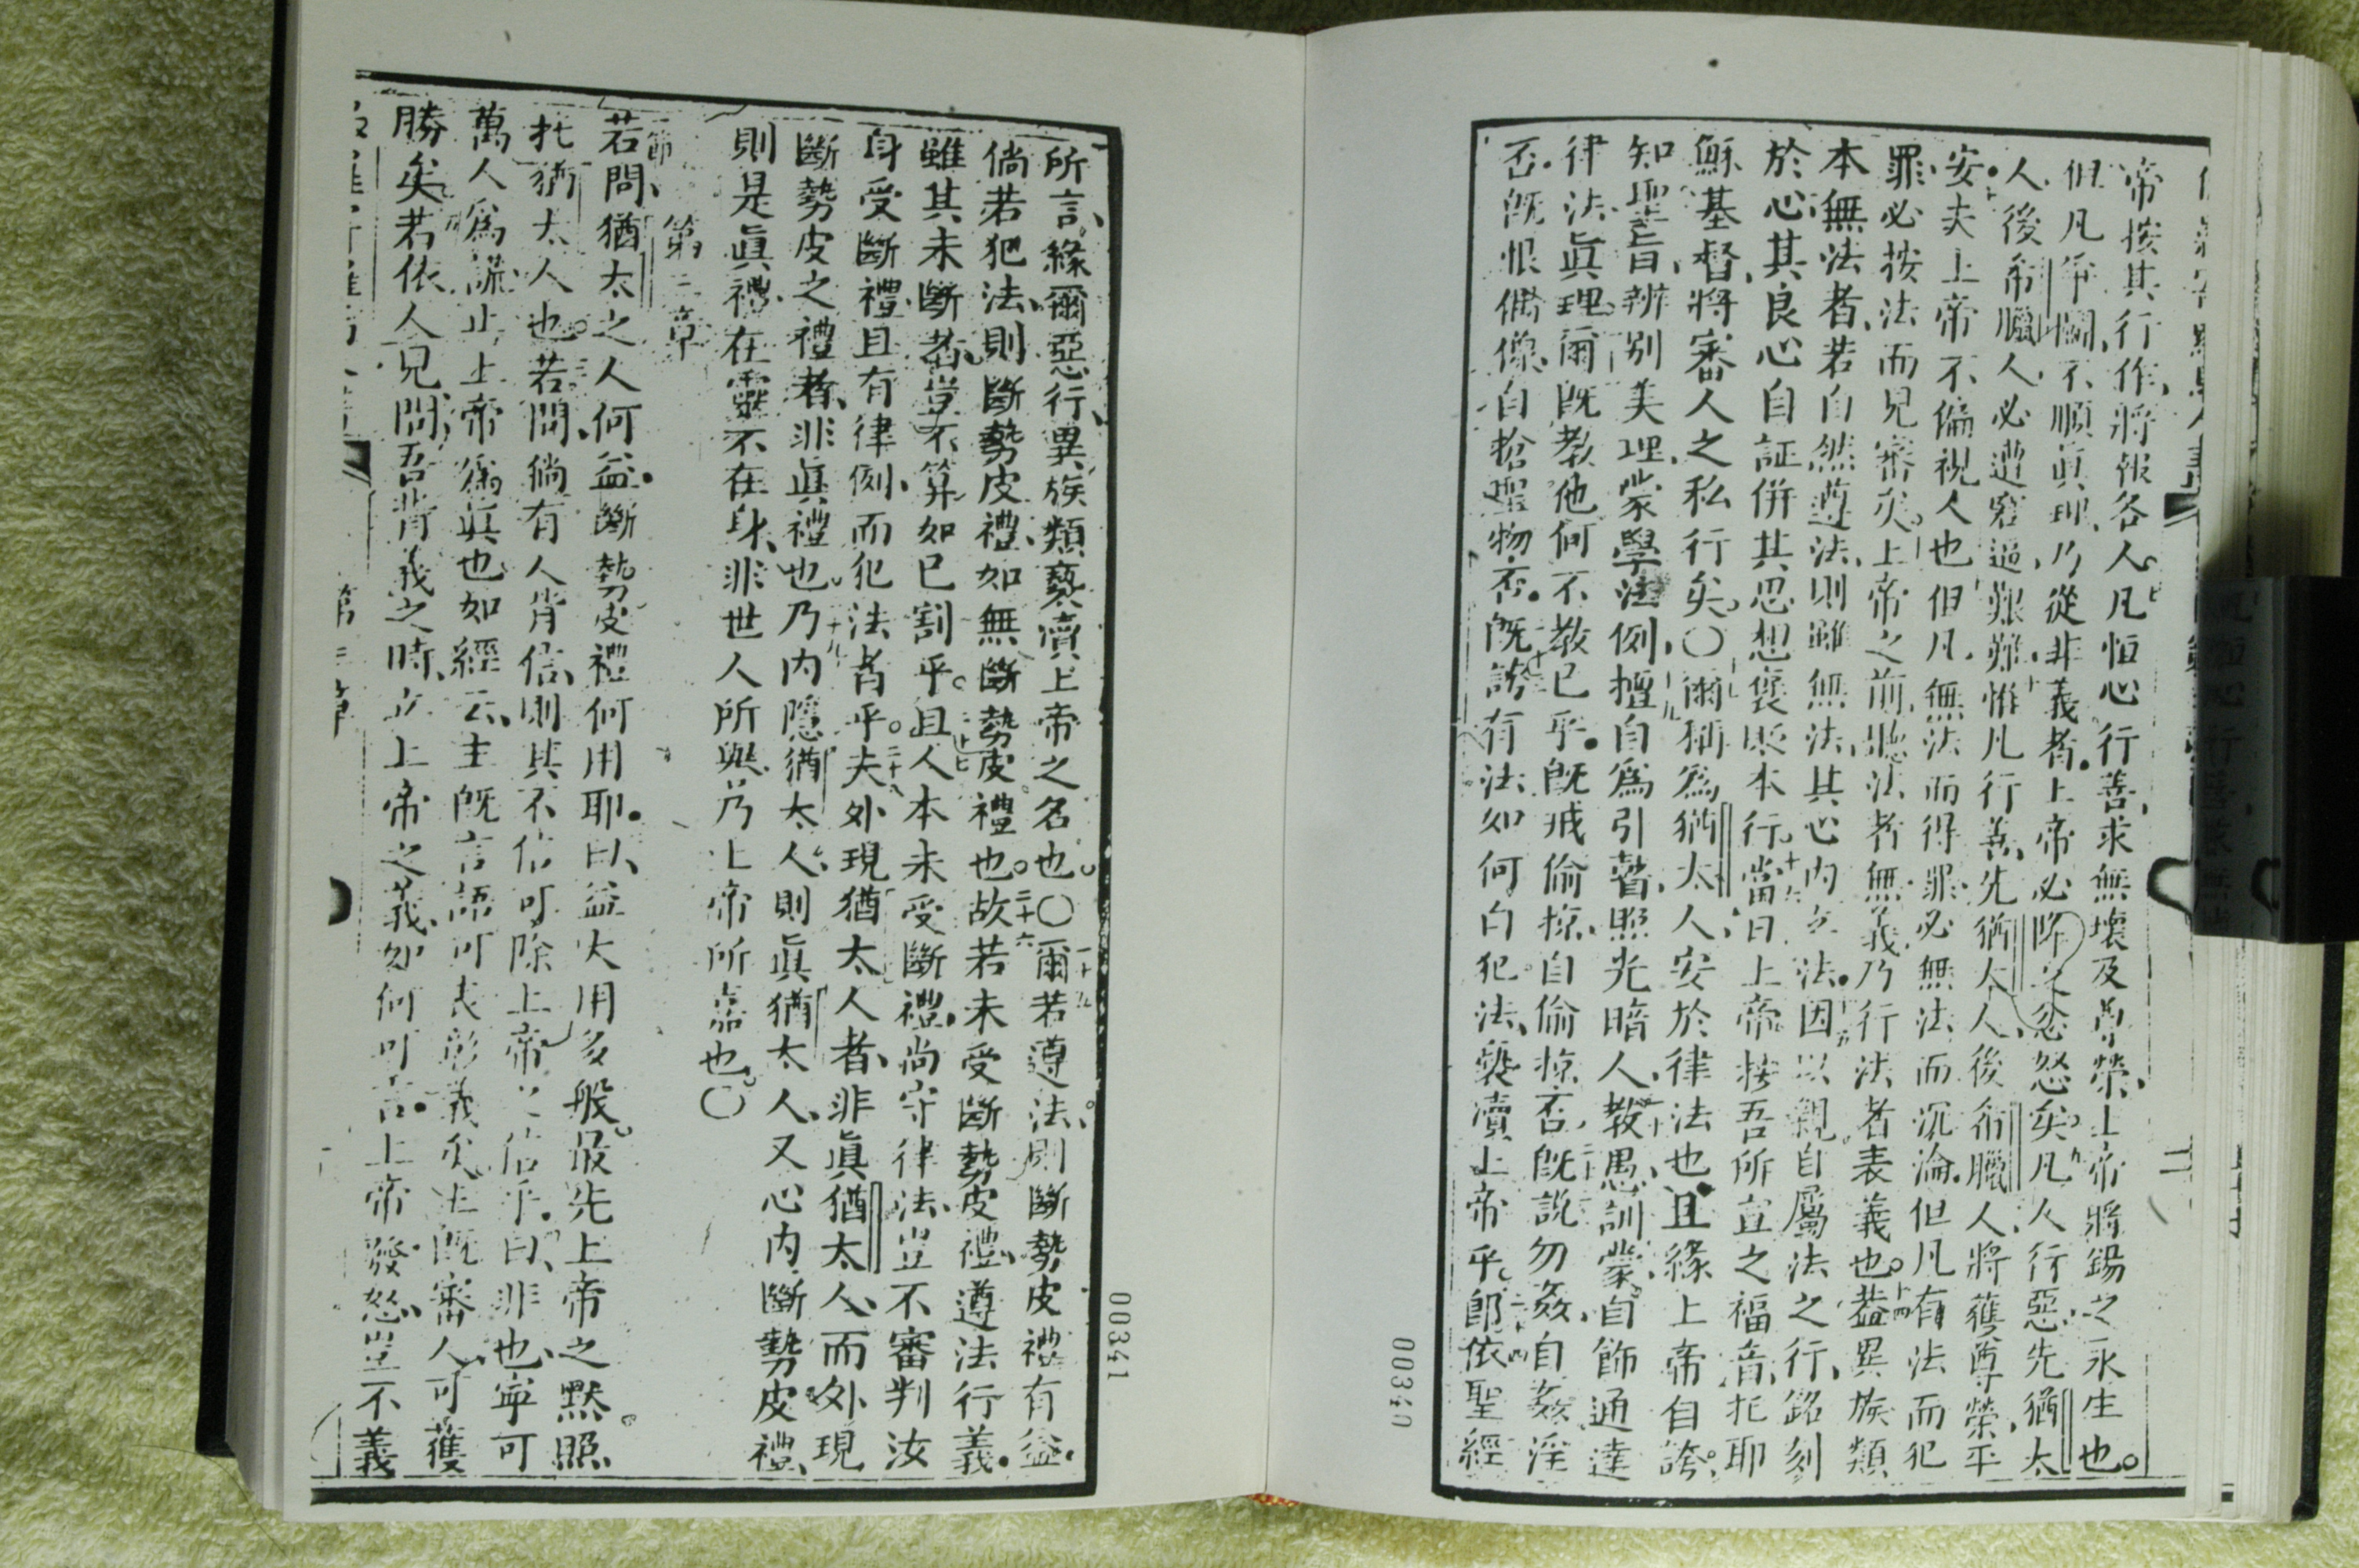 帝按其行作、將報各人。凡恒心行善、求無壞及尊榮、上帝將錫之永生也。
但凡爭鬭、不順真理、乃從非義者、上帝必降之忿怒矣。凡人行惡、先猶太
人、後希臘人、必遭窘逼艱難、惟凡行善、先猶太人、後希臘人、將獲尊榮平
安。夫上帝不偏視人也。但凡無法而得罪、必無法而沉淪、但凡有法而犯
罪、必按法而見審矣。上帝之前、聽法者無義、乃行法者表義也。十四蓋異族類
本無法者、若自然遵法、則雖無法、其心內立法。十五因以親自屬法之行、銘刻
於心、其良心自証、併其思想褒貶本行。十六當日上帝按吾所宣之福音、托耶
穌基督、將審人之私行矣。〇爾稱為猶太人、安於律法也、且緣上帝自誇。
知聖旨、辨別美理、蒙學法例、十九擅自為引瞽、照光暗人、二十教愚訓蒙、自飾通達
律法真理。爾既教他、何不教己乎。既戒偷掠、自偷掠否。既說勿姦、自姦淫
否。既恨偶像、自搶聖物否。既誇有法、如何自犯法、褻瀆上帝乎。二十四即依聖經
00340
所言、緣爾惡行、異族類褻瀆上帝之名也。〇二十五爾若遵法、則斷勢皮禮有益。
倘若犯法、則斷勢皮禮、如無斷勢皮禮也。二十六故若未受斷勢皮禮、遵法行義。
雖其未斷者、豈不算如已割乎。二十七且人本未受斷禮、尚守律法、豈不審判汝
身受斷禮、且有律例、而犯法者乎。二十八夫外現猶太人者、非真猶太人、而外現
斷勢皮之禮者、非真禮也。二十九乃內隱猶太人、則真猶太人、又心內斷勢皮禮、
則是真禮、在靈不在身、非世人所與、乃上帝所嘉也。〇
第三章
節
若問、猶太之人何益。斷勢皮禮何用耶。曰、益大用多般。最先上帝之默照、
托猶太人也。若問、倘有人肯信、則其不信、可除上帝之信乎。曰、非也、寧可
萬人為謊、止上帝為真也。如經云、主既言語、可表彰義矣。主既審人、可獲
勝矣。若依人見問、吾背義之時、立上帝之義、如何可言。上帝發怒、豈不義
第三章
00341